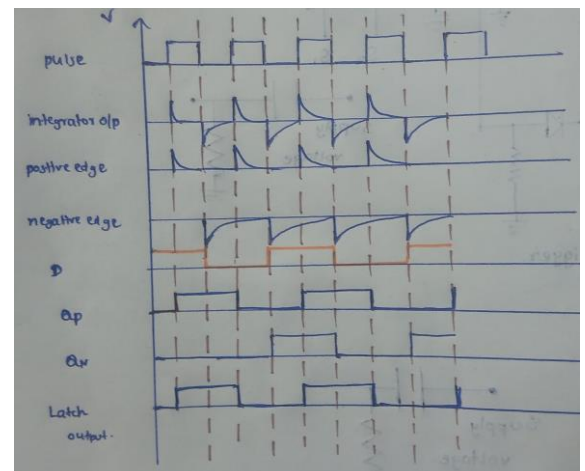 V
pulse
integrator o/p
positive edge
negative edge
D
QP
QN
Latch
output.